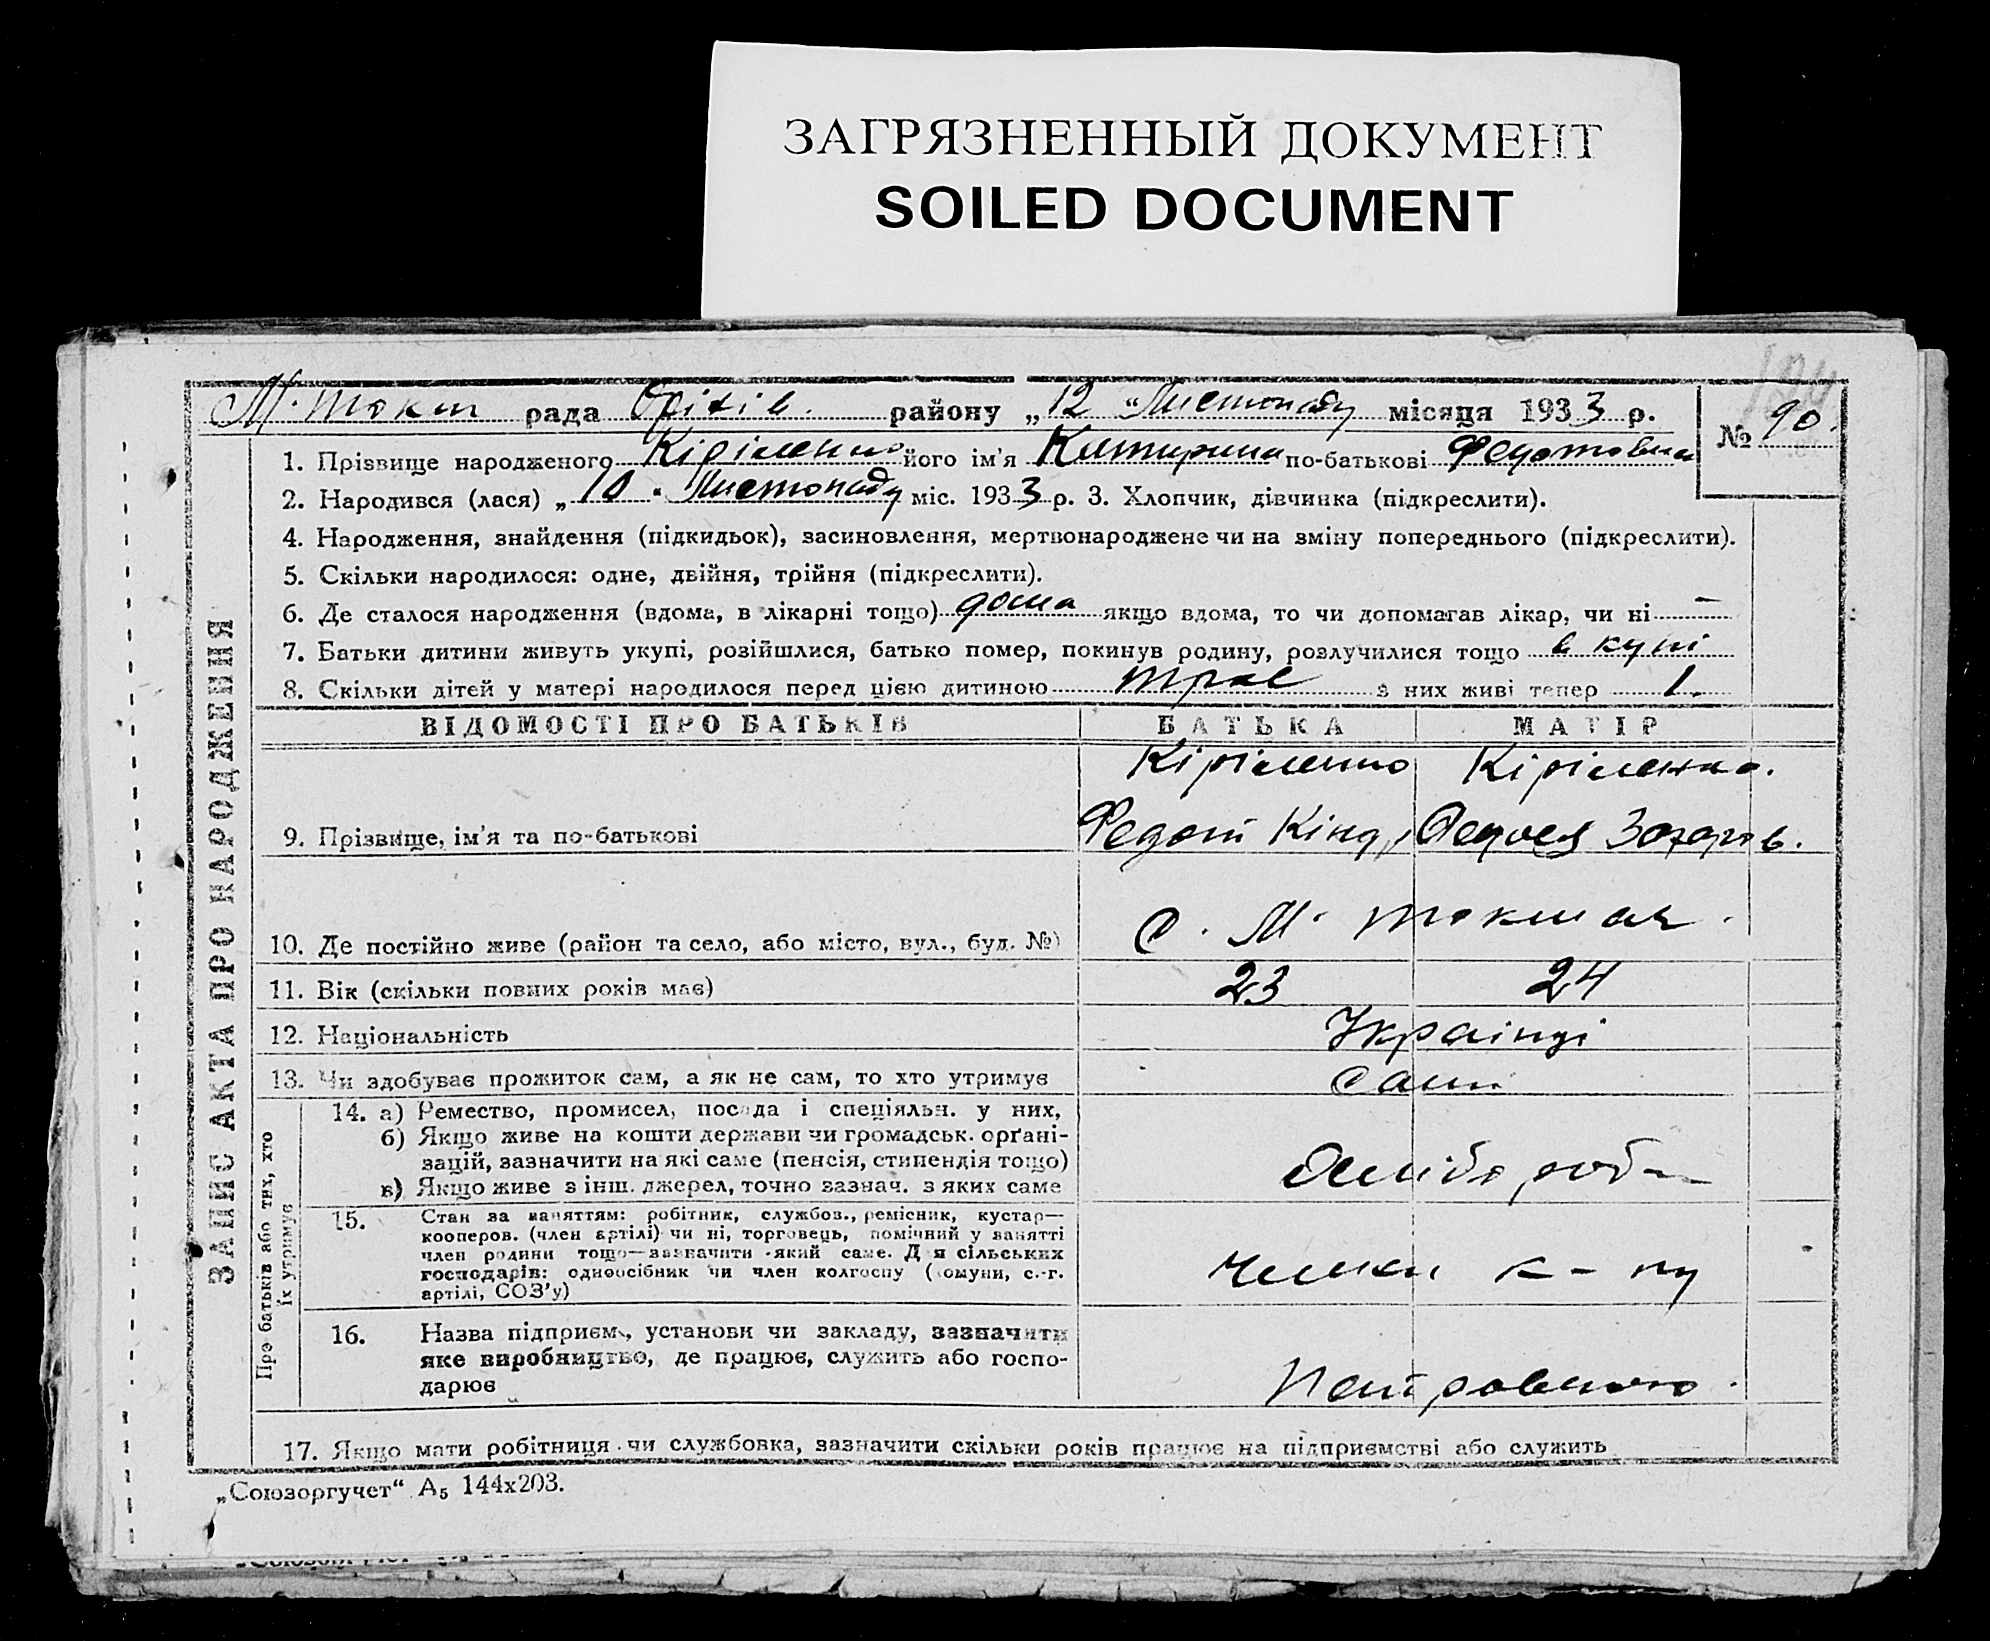 ЗАГРЯЗНЕННЫЙ ДОКУМЕНТ
SOILED DOCUMENT
М. Токм рада Оріхів. району „12 “ Листопаду місяця 1933 р. № 90.
1. Прізвище народженого Кіріленко його ім'я Катирина по-батькові Федотовна
2. Народився (лася) „ 10 “ Листопаду міс. 1933 р. 3. Хлопчик, дівчинка (підкреслити).
4. Народження, знайдення (підкидьок), засиновлення, мертвонароджене чи на зміну попереднього (підкреслити).
5. Скільки народилося: одне, двійня, трійня (підкреслити).
6. Де сталося народження (вдома, в лікарні тощо) дома якщо вдома, то чи допомагав лікар, чи ні —
7. Батьки дитини живуть укупі, розійшлися, батько помер, покинув родину, розлучилися тощо в купі
8. Скільки дітей у матері народилося перед цією дитиною трое з них живі тепер 1.
ЗАПИС АКТА ПРО НАРОДЖЕННЯ
ВІДОМОСТІ ПРО БАТЬКІВ БАТЬКА МАТІР
Кіріленко Кіріленко.
9. Прізвище, ім'я та по-батькові Федот Кінд
10. Де постійно живе (район та село, або місто, вул., буд. №) с. М. Токмак.
11. Вік (скільки повних років має) 23 24
12. Національність Українці
13. Чи здобуває прожиток сам, а як не сам, то хто утримує Сами
Про батьків або тих, хто їх утримує
14. а) Ремество, промисел, посада і спеціяльн. у них,
б) Якщо живе на кошти держави чи громадськ. орґані-
зацій, зазначити на які саме (пенсія, стипендія тощо)
в) Якщо живе з інш. джерел, точно зазнач. з яких саме
15. Стан за заняттям: робітник, службов., ремісник, кустар—
кооперов. (член артілі) чи ні, торговець, помічний у занятті
член родини тощо—зазначити який саме. Для сільських
господарів: одноосібник чи член колгоспу (комуни, с.-г.
артілі, СОЗ'у) члени к-пу
16. Назва підприєм., установи чи закладу, зазначити
яке виробництво, де працює, служить або госпо-
дарює Петровского.
17. Якщо мати робітниця чи службовка, зазначити скільки років працює на підприємстві або служить
„Союзоргучет“ А5 144х203.